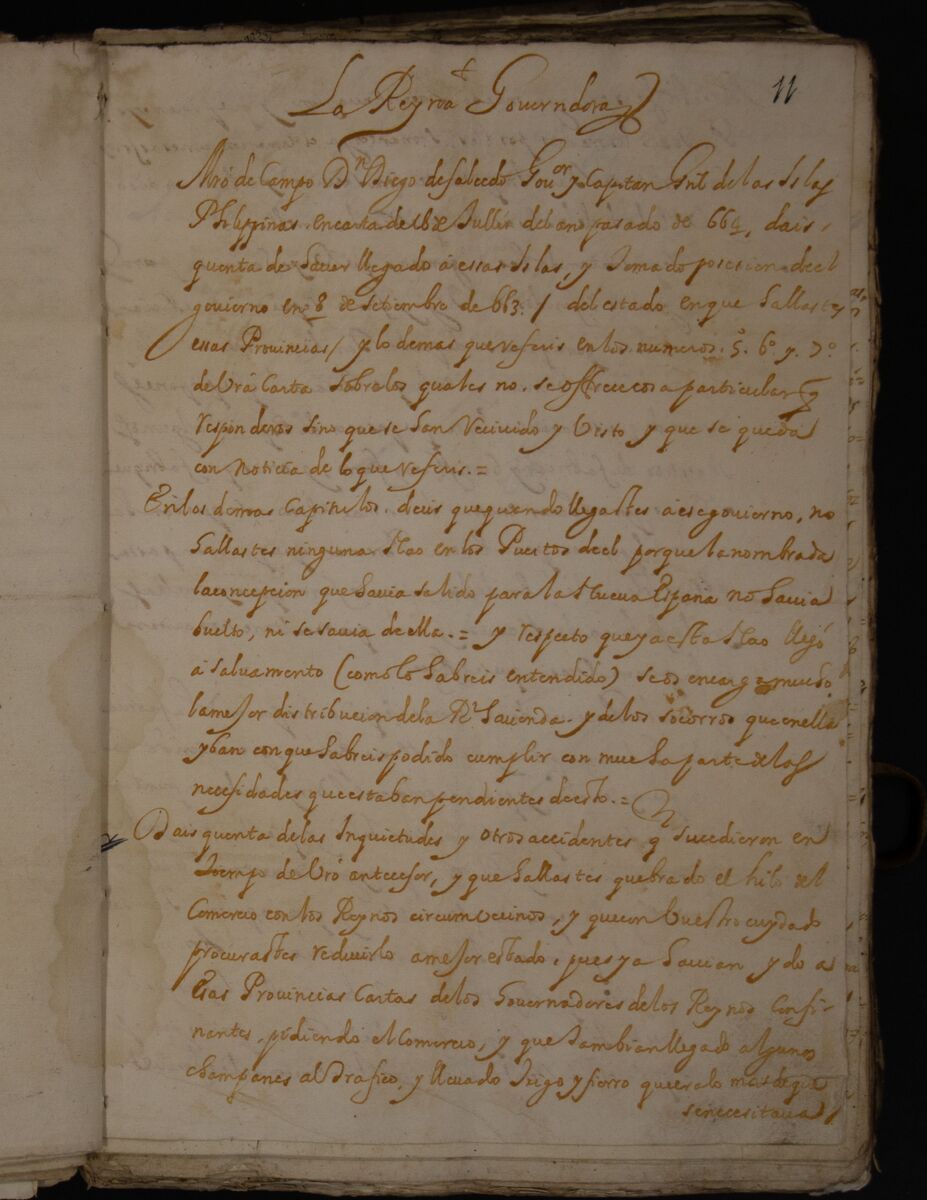 11
La Reyna Governdora
Mro de Campo Dn Diego de salcedo Gouor y Capitan Gnl de las Islas
Philippinas. en carta de 16 de Jullio del ano pasado de 664, dais
quenta de hauer llegado á essas Islas, y tomado posesion de el
govierno en 8 de setiembre de 663. / del estado en que hallastes
essas Provincias / y lo demas que referis en los numeros. 5. 6º y 7º
de Vrá Carta sobre los quales no. se offrece cosa particular q
responderos sino que se han recivido y visto y que se queda
con noticia de lo que referis. =
En los demas Capitulos. decis que quando llegastes a ese govierno, no
hallastes ninguna Nao en los Puertos de el porque la nombrada
la concepcion que havia salido para la Nueva España no havia
buelto, ni se savia de ella. = y respecto que ya esta Nao llegó
a salvamento (como lo habreis entendido) se os encarga mucho
la mejor distribucion de la Rl hacienda. y de los socorros que en ella
yban con que habreis podido cumplir con mucha parte de las
necesidades que estaban pendientes de esto. =
Dais quenta de las Inquietudes y otros accidentes q sucedieron en
tiempo de Vró antecesor, y que hallastes quebrado el hilo del
Comercio con los Reynos circumvecinos, y que con buestro cuydado
procurastes reducirlo a mejor estado, pues ya havian ydo a
Esas Provincias Cartas de los Governadores de los Reynos Confi-
nantes, pidiendo el Comercio, y que tambian llegado algunos
champanes al trafico, y lleuado trigo y fierro que era lo mas de que
se necesitava